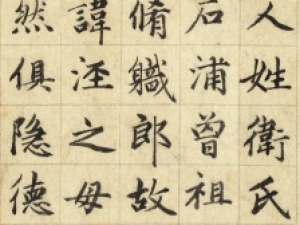 人姓衛氏
石浦曽祖
脩職郎故
諱涇之母
然俱隐德